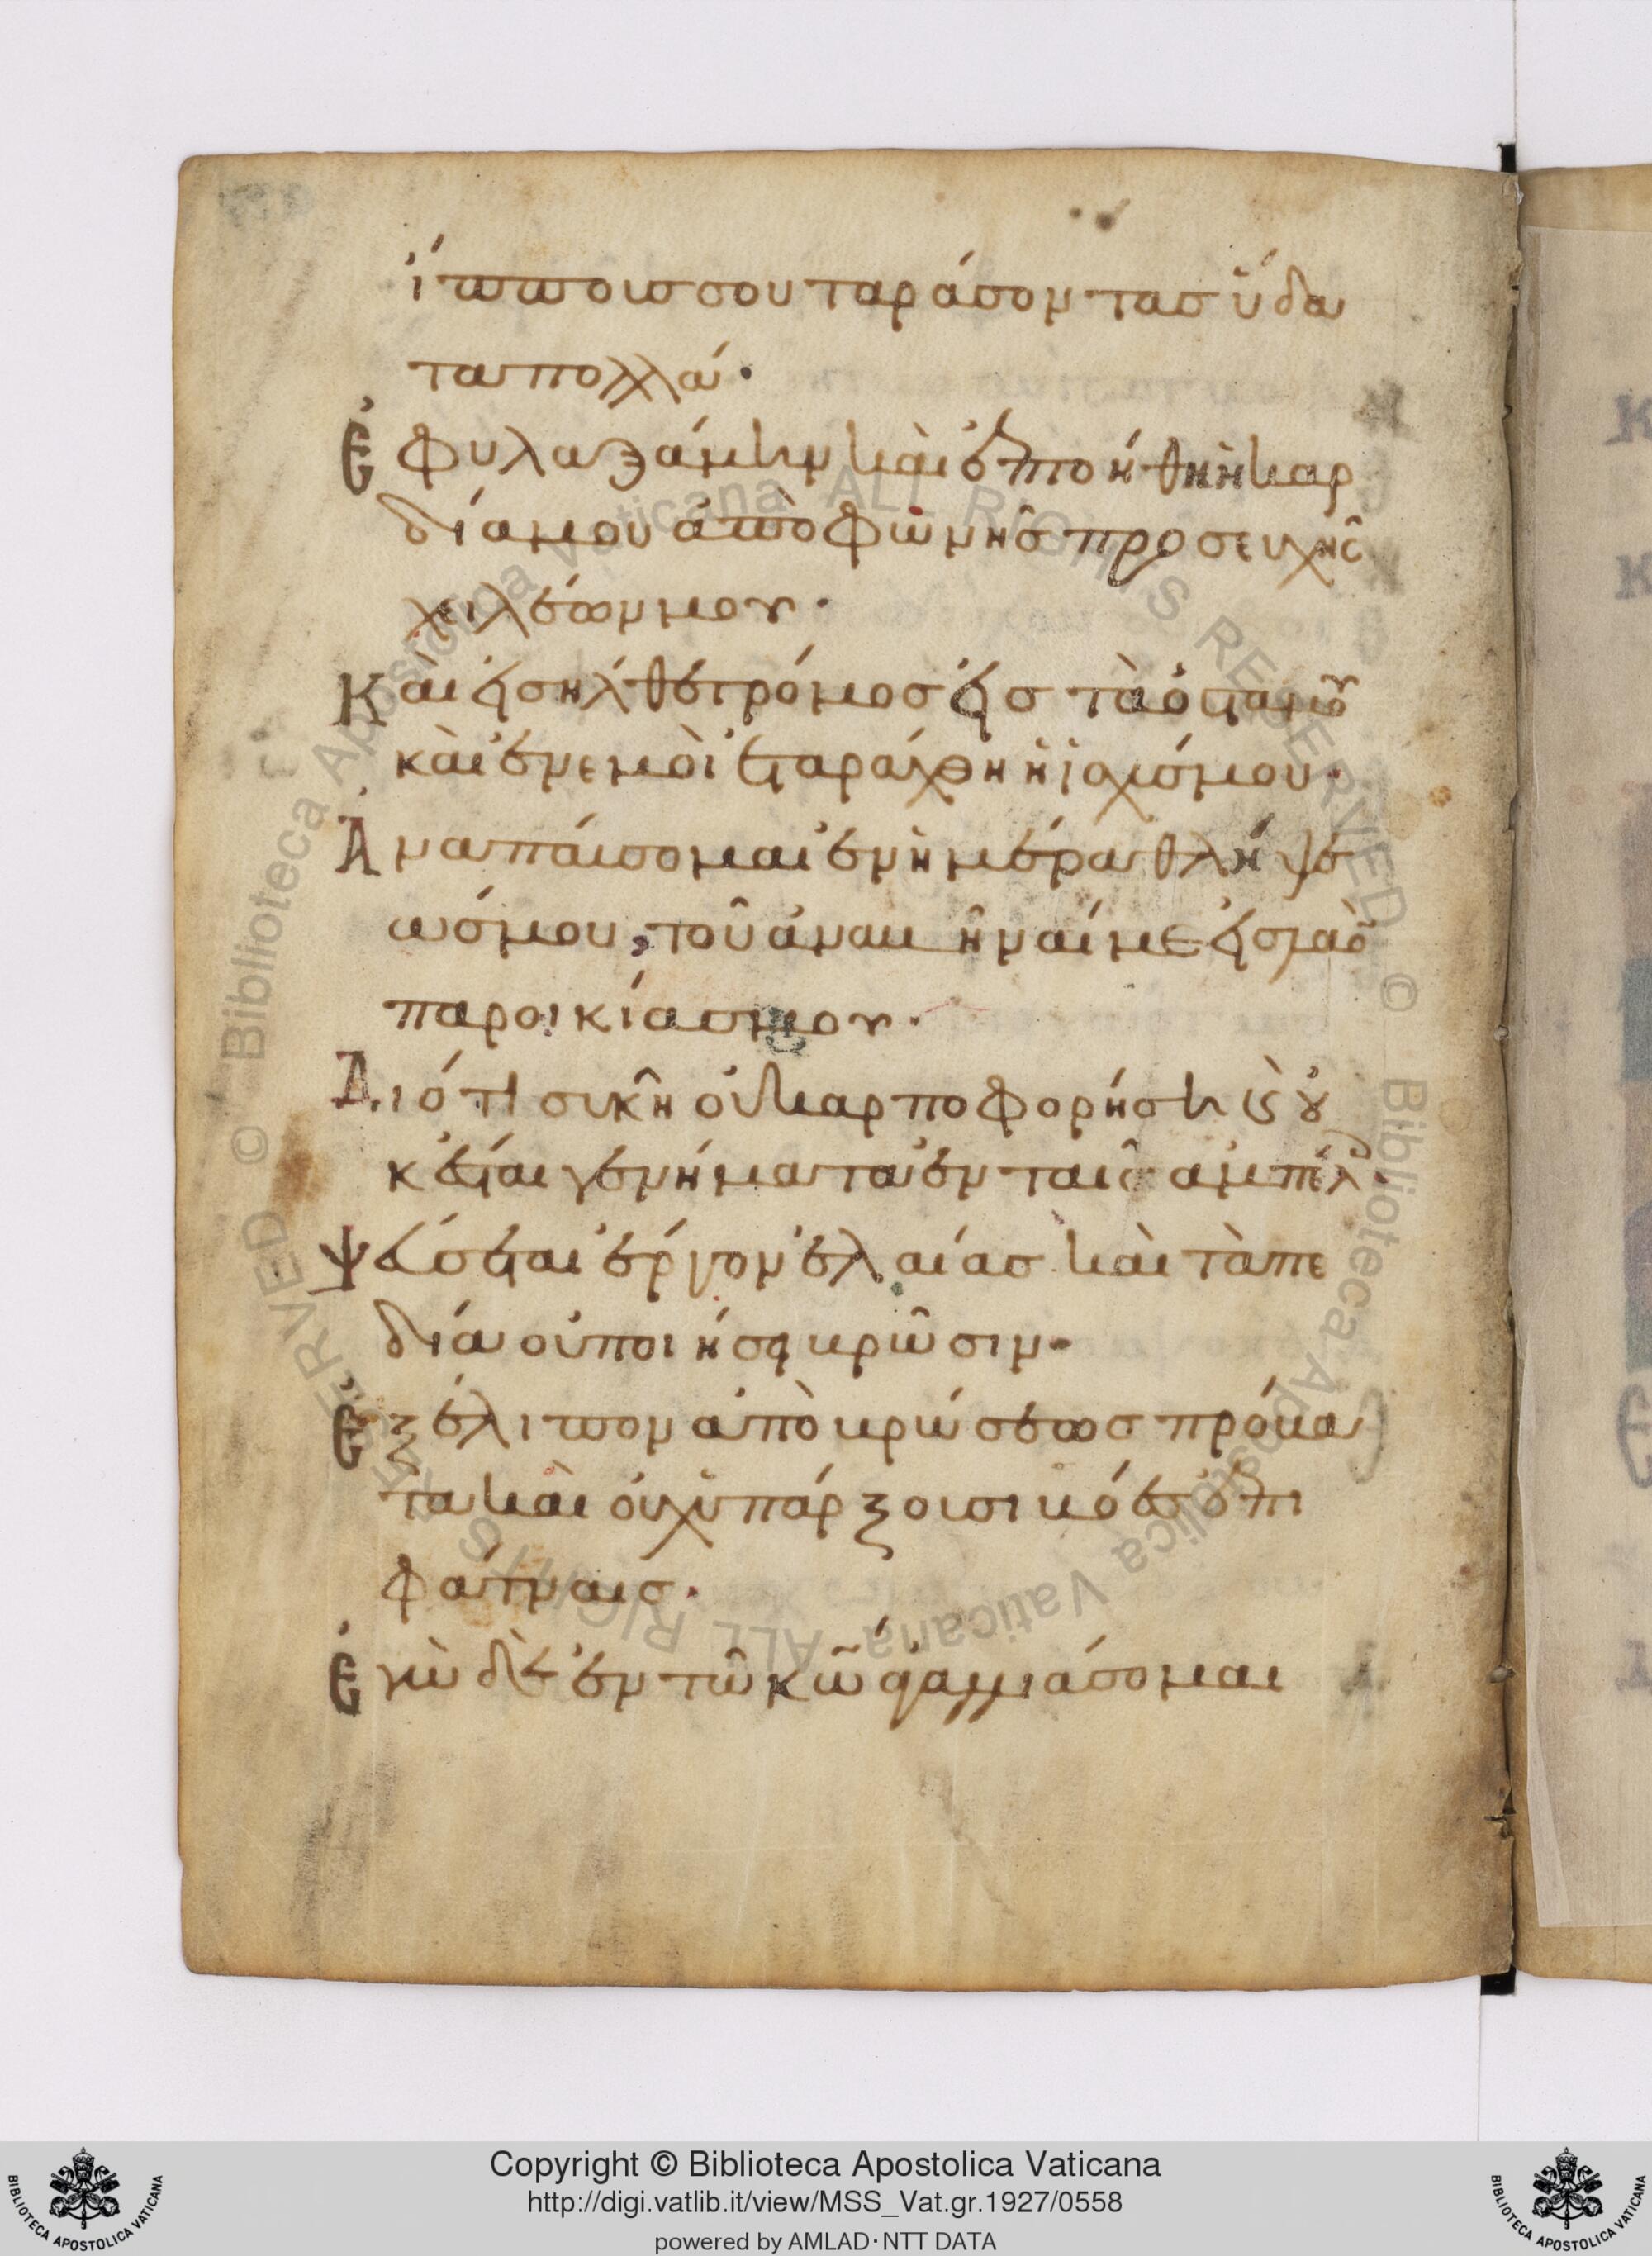 ἵπποισ σου ταράσοντασ ὕδα
τα πολλά·
Ἐφυλαξάμην καὶ ἐπτοήθη ἡ καρ
δία μου ἀπὸ φωνῆσ προσευχῆσ
χειλέων μου·
Καὶ εἰσῆλθε τρόμοσ εἰσ τὰ ὀστᾶ μου
καὶ ἐν ἐμοὶ ἐταράχθη ἡ ἰσχίσ μου·
Ἀναπαίσομαι ἐν ἡμέρα θλήψε
ώσ μου, τοῦ ἀναβῆναί με εἰσ λαὸ
παροικίασ μου·
Διότι συκῆ οὐ καρποφορήσει καὶ οὐ
κ ἔσται γενήματα ἐν ταῖσ ἀμπέλ·
Ψεύσεται ἔργον ἐλαίασ καὶ τὰ πε
δία οὐ ποιήσει βρῶσιν·
Ἐξέλιπον ἀπὸ βρώσεωσ πρόβα
τα καὶ οὐχ ὑπάρξουσι βόεσ ἐπὶ
φάτναισ·
Ἐγὼ δὲ ἐν τῶ κῶ ἀγαλλιάσομαι
Copyright © Biblioteca Apostolica Vaticana
http://digi.vatlib.it/view/MSS_Vat.gr.1927/0558
powered by AMLAD·NTT DATA
BIBLIOTECA APOSTOLICA VATICANA
BIBLIOTECA APOSTOLICA VATICANA
© Biblioteca Apostolica Vaticana ALL RIGHTS RESERVED
© Biblioteca Apostolica Vaticana ALL RIGHTS RESERVED